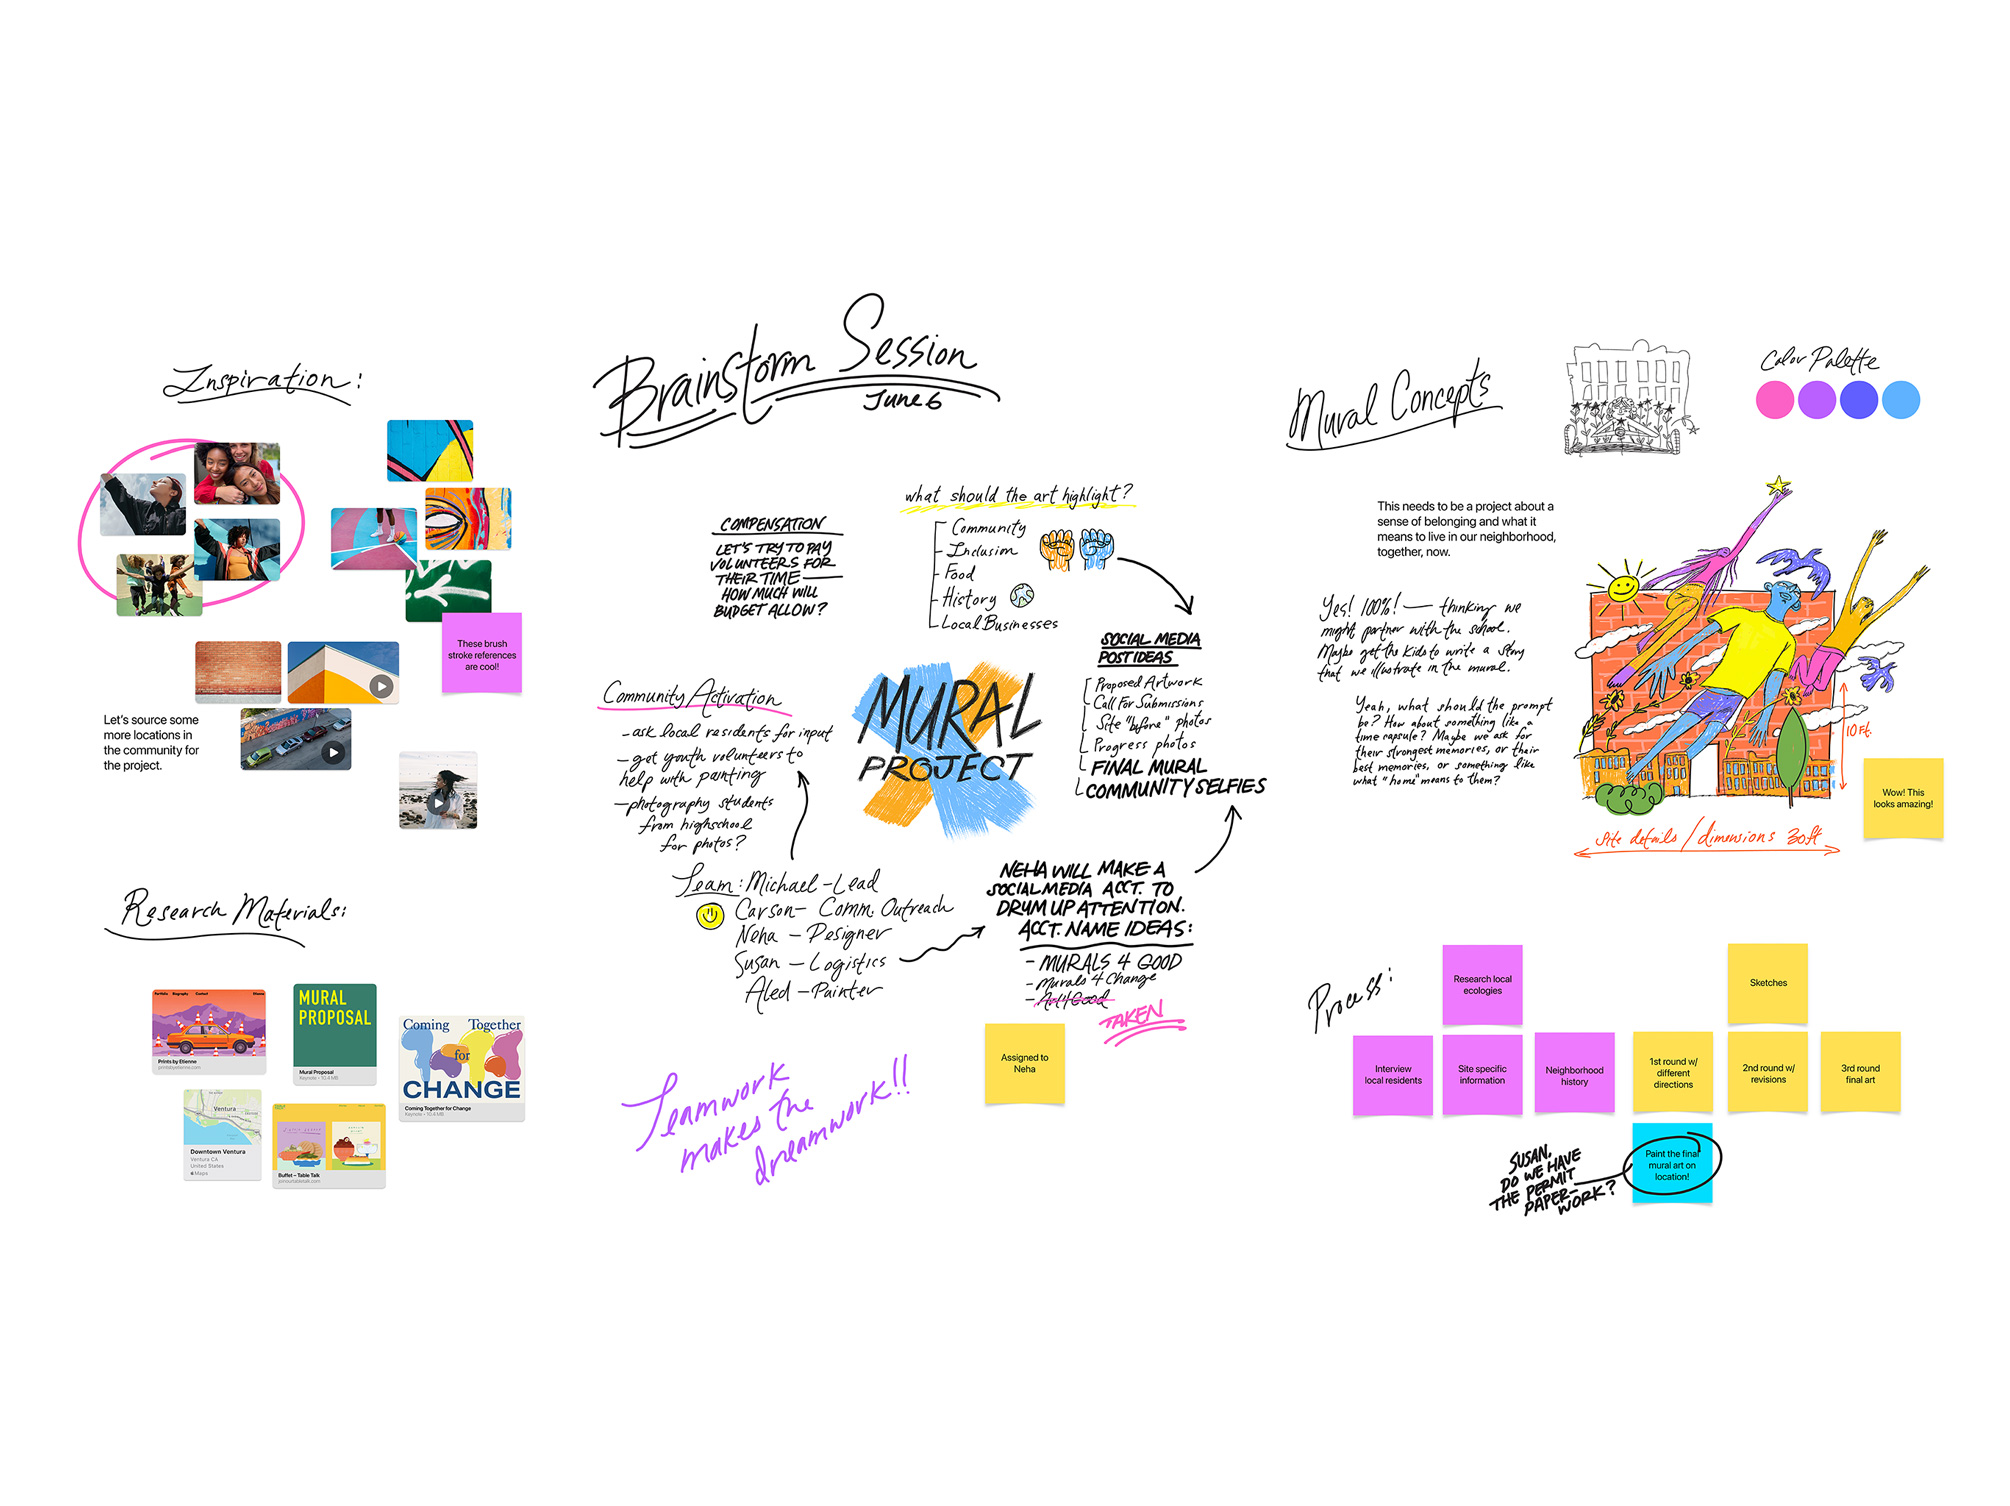 Inspiration:
These brush
stroke references
are cool!
Let's source some
more locations in
the community for
the project.
Research Materials:
Portfolio Biography Contact
Prints by Etienne
MURAL
PROPOSAL
Mural Proposal
Keynote • 10.4 MB
Coming Together
for
CHANGE
Coming Together for Change
Keynote • 10.6 MB
Ventura
Downtown Ventura
Ventura CA
United States
Maps
Buffet – Table Talk
joinourtabletalk.com
Brainstorm Session
June 6
COMPENSATION
LET'S TRY TO PAY
VOLUNTEERS FOR
THEIR TIME —
HOW MUCH WILL
BUDGET ALLOW?
what should the art highlight?
Community
Inclusion
Food
History
Local Businesses
SOCIAL MEDIA
POST IDEAS
Proposed Artwork
Call For Submissions
Site "before" photos
Progress photos
FINAL MURAL
COMMUNITY SELFIES
Community Activation
- ask local residents for input
- got youth volunteers to
help with painting
- photography students
from highschool
for photos?
MURAL
PROJECT
Team: Michael - Lead
Carson - Comm. Outreach
Neha - Designer
Susan - Logistics
Aled - Painter
NEHA WILL MAKE A
SOCIAL MEDIA ACCT. TO
DRUM UP ATTENTION.
ACCT. NAME IDEAS:
- MURALS 4 GOOD
- Murals 4 Change
- Art4Good
TAKEN
Assigned to
Neha
Teamwork
makes the
dreamwork!!
Mural Concepts
Color Palette
This needs to be a project about a
sense of belonging and what it
means to live in our neighborhood,
together, now.
Yes! 100%! — thinking we
might partner with the school.
Maybe get the kids to write a story
that we illustrate in the mural.
Yeah, what should the prompt
be? How about something like a
time capsule? Maybe we ask for
their strongest memories, or their
best memories, or something like
what "home" means to them?
10 Ft.
Site details / dimensions 30ft
Wow! This
looks amazing!
Process:
Research local
ecologies
Sketches
Interview
local residents
Site specific
information
Neighborhood
history
1st round w/
different
directions
2nd round w/
revisions
3rd round
final art
SUSAN,
DO WE HAVE
THE PERMIT
PAPER-
WORK?
Paint the final
mural art on
location!